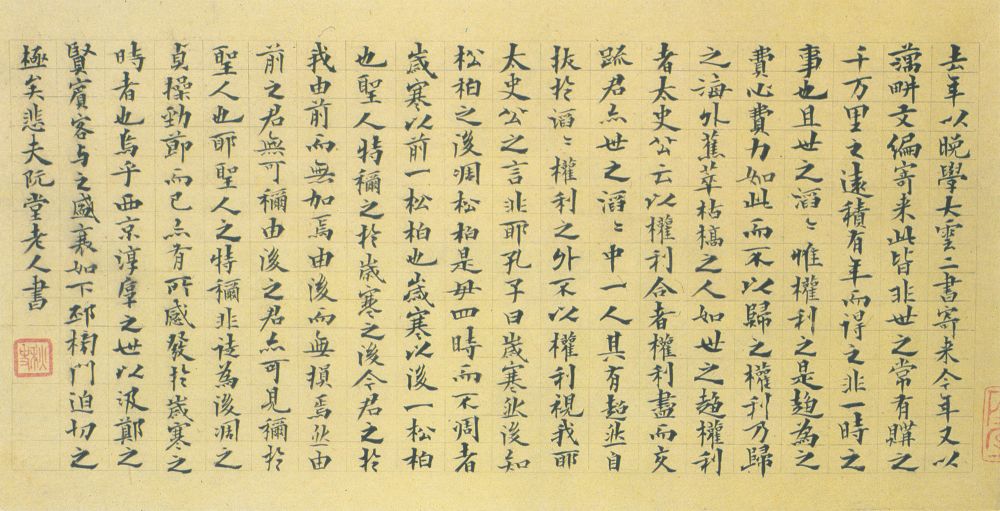 去年以晚學大雲二書寄來今年又以
藕畊文編寄來此皆非世之常有購之
千万里之遠積有年而得之非一時之
事也且世之滔〻惟權利之是趨為之
費心費力如此而不以歸之權利乃歸
之海外蕉萃枯槁之人如世之趨權利
者太史公云以權利合者權利盡而交
疏君亦世之滔〻中一人其有超然自
拔於滔〻權利之外不以權利視我耶
太史公之言非耶孔子曰歲寒然後知
松柏之後凋松柏是毋四時而不凋者
歲寒以前一松柏也歲寒以後一松柏
也聖人特穪之於歲寒之後今君之於
我由前而無加焉由後而無損焉然由
前之君無可穪由後之君亦可見穪於
聖人也耶聖人之特穪非徒為後凋之
貞操勁節而已亦有所感發於歲寒之
時者也烏乎西京淳厚之世以汲鄭之
賢賓客与之盛衰如下邳榜門迫切之
極矣悲夫阮堂老人書